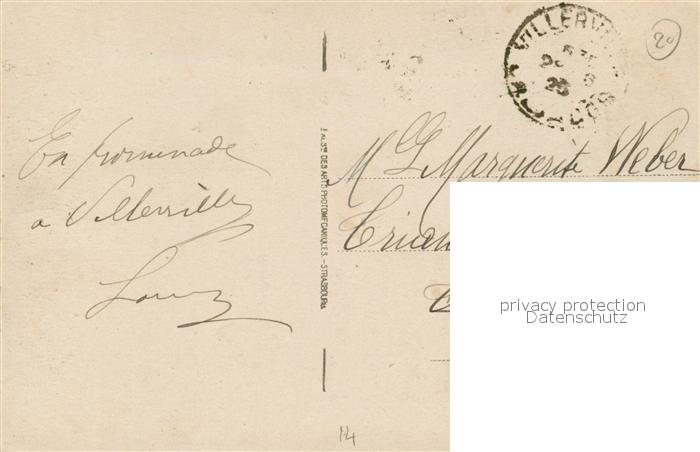 En promenade
a Villerville
ALSne DES ARTS PHOTOMECANIQUES. – STRASBOURG
VILLERVILLE
25
20
Marguerite Weber
privacy protection
Datenschutz
14